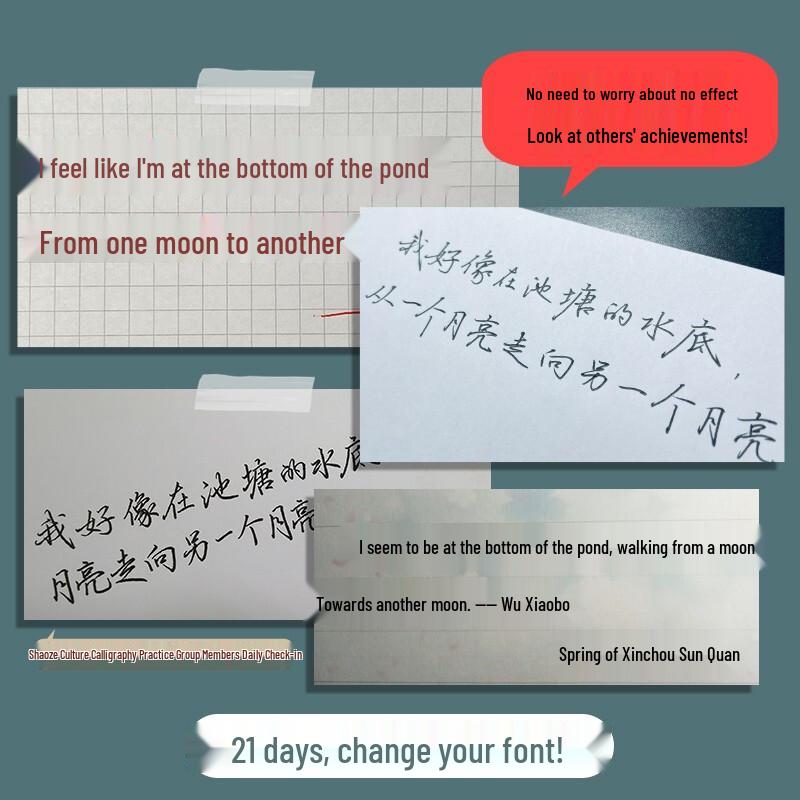 No need to worry about no effect
Look at others' achievements!
I feel like I'm at the bottom of the pond
From one moon to another
我好像在池塘的水底，
从一个月亮走向另一个月亮
我好像在池塘的水底
月亮走向另一个月亮
I seem to be at the bottom of the pond, walking from a moon
Towards another moon. —— Wu Xiaobo
Spring of Xinchou Sun Quan
Shaoze Culture Calligraphy Practice Group Members Daily Check-in
21 days, change your font!